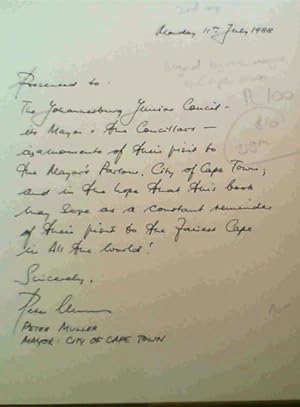 Monday 11th July 1988
Presented to:
The Johannesburg Junior Council -
its Mayor & the Councillors -
as a memento of their visit to
the Mayor's Parlour, City of Cape Town,
and in the hope that this book
may serve as a constant reminder
of their visit to the Fairest Cape
in All the World!
Sincerely,
PETER MULLER
MAYOR: CITY OF CAPE TOWN
R 100